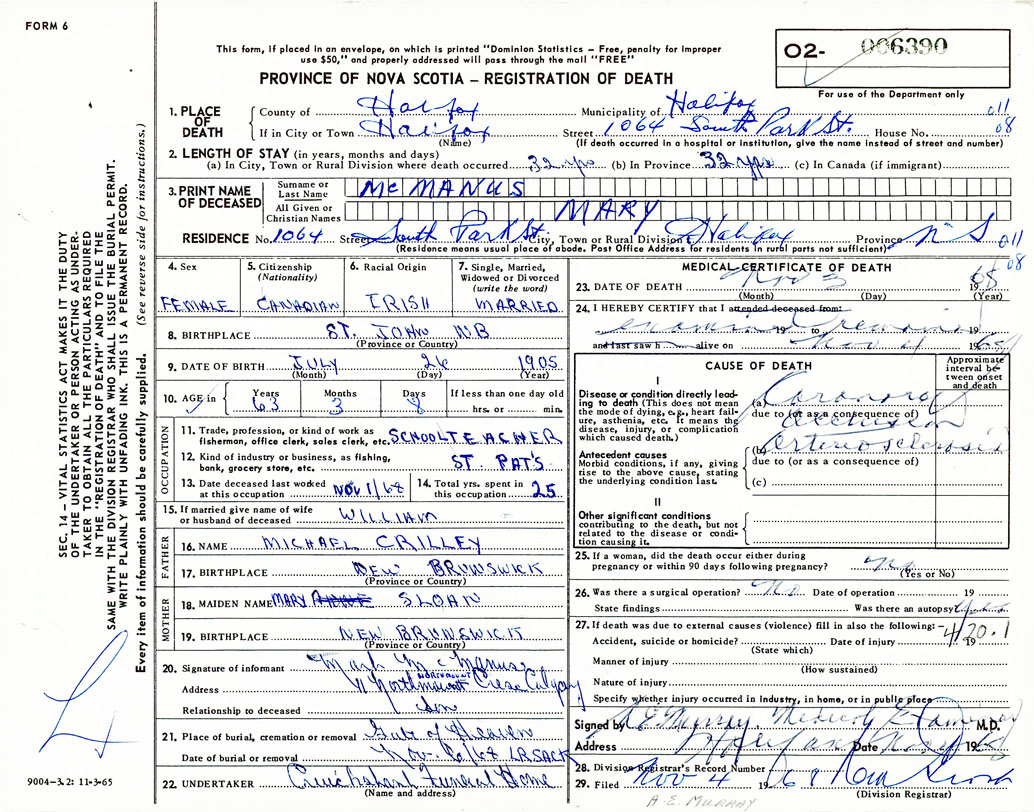 FORM 6
This form, if placed in an envelope, on which is printed "Dominion Statistics – Free, penalty for improper
use $50," and properly addressed will pass through the mail "FREE"
O2- 006390
For use of the Department only
PROVINCE OF NOVA SCOTIA – REGISTRATION OF DEATH
SEC. 14 – VITAL STATISTICS ACT MAKES IT THE DUTY
OF THE UNDERTAKER OR PERSON ACTING AS UNDER-
TAKER TO OBTAIN ALL THE PARTICULARS REQUIRED
IN THE "REGISTRATION OF DEATH" AND TO FILE THE
SAME WITH THE DIVISION REGISTRAR WHO SHALL ISSUE THE BURIAL PERMIT.
WRITE PLAINLY WITH UNFADING INK. THIS IS A PERMANENT RECORD.
Every item of information should be carefully supplied. (See reverse side for instructions.)
1. PLACE OF DEATH County of Halifax Municipality of Halifax 011
If in City or Town Halifax Street 1064 South Park St. House No. 08
(Name) (If death occurred in a hospital or institution, give the name instead of street and number)
2. LENGTH OF STAY (in years, months and days)
(a) In City, Town or Rural Division where death occurred 32 yrs (b) In Province 32 yrs (c) In Canada (if immigrant)
3. PRINT NAME OF DECEASED Surname or Last Name McMANUS
All Given or Christian Names MARY
RESIDENCE No. 1064 Street South Park St. City, Town or Rural Division Halifax Province N S 011
(Residence means usual place of abode. Post Office Address for residents in rural parts not sufficient) 08
4. Sex FEMALE
5. Citizenship (Nationality) CANADIAN
6. Racial Origin IRISH
7. Single, Married, Widowed or Divorced (write the word) MARRIED
8. BIRTHPLACE ST. JOHN NB
(Province or Country)
9. DATE OF BIRTH JULY 26 1905
(Month) (Day) (Year)
10. AGE in Years 63 Months 3 Days 8 If less than one day old
hrs. or min.
OCCUPATION
11. Trade, profession, or kind of work as
fisherman, office clerk, sales clerk, etc. SCHOOLTEACHER
12. Kind of industry or business, as fishing,
bank, grocery store, etc. ST. PAT'S
13. Date deceased last worked at this occupation NOV 1/68
14. Total yrs. spent in this occupation 25
15. If married give name of wife
or husband of deceased WILLIAM
FATHER
16. NAME MICHAEL CRILLEY
17. BIRTHPLACE NEW BRUNSWICK
(Province or Country)
MOTHER
18. MAIDEN NAME MARY SLOAN
19. BIRTHPLACE NEW BRUNSWICK
(Province or Country)
20. Signature of informant Mark McManus
NORTHMOUNT
Address 11 Northmount Cresc Calgary
Relationship to deceased Son
21. Place of burial, cremation or removal Gate of Heaven
Date of burial or removal Nov. 6/68 LR.SACK
22. UNDERTAKER Cruickshank Funeral Home
(Name and address)
MEDICAL CERTIFICATE OF DEATH
23. DATE OF DEATH Nov 3 1968
(Month) (Day) (Year)
24. I HEREBY CERTIFY that I attended deceased from:
examined remains 19 to 19
and last saw h alive on Nov 4 1968
CAUSE OF DEATH
Approximate interval between onset and death
I
Disease or condition directly lead-
ing to death (This does not mean
the mode of dying, e.g., heart fail-
ure, asthenia, etc. It means the
disease, injury, or complication
which caused death.)
(a) Coronary
due to (or as a consequence of)
occlusion
Antecedent causes
Morbid conditions, if any, giving
rise to the above cause, stating
the underlying condition last.
(b) arteriosclerosis
due to (or as a consequence of)
(c)
II
Other significant conditions
contributing to the death, but not
related to the disease or condi-
tion causing it.
25. If a woman, did the death occur either during
pregnancy or within 90 days following pregnancy? No
(Yes or No)
26. Was there a surgical operation? No Date of operation 19
State findings Was there an autopsy?
27. If death was due to external causes (violence) fill in also the following:- 420.1
Accident, suicide or homicide? Date of injury 19
(State which)
Manner of injury
(How sustained)
Nature of injury
Specify whether injury occurred in Industry, in home, or in public place
Signed by A E Murray, Medical Examiner M.D.
Address Halifax Date Nov 4 1968
28. Division Registrar's Record Number
29. Filed Nov 4 1968
(Division Registrar)
A.E. MURRAY
9004-3.2: 11-3-65